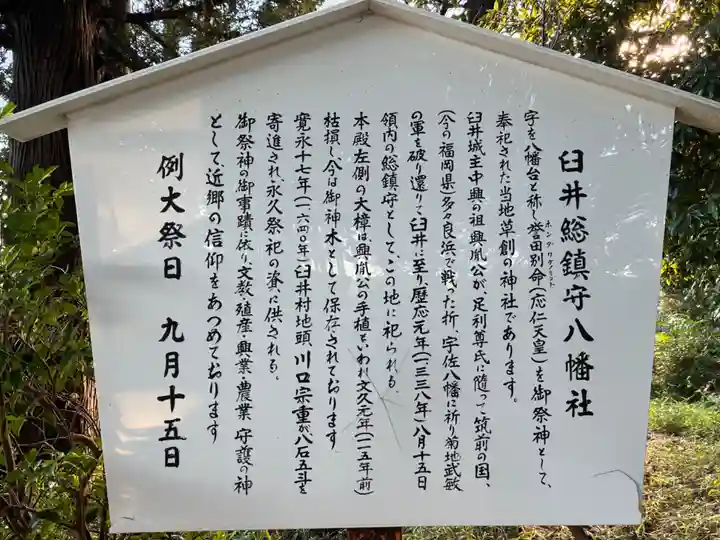 臼井総鎮守八幡社
字を八幡台と称し誉田別命(応仁天皇)を御祭神として、
ホンダワケノミコト
奉祀された当地草創の神社であります。
臼井城主中興の祖興胤公が、足利尊氏に随って筑前の国、
(今の福岡県)多々良浜で戦った折、宇佐八幡に祈り菊地武敏
の軍を破り還りて臼井に至り、歴応元年(一三三八年)八月十五日
領内の総鎮守として、この地に祀られる。
本殿左側の大樟は興胤公の手植といわれ文久元年(一二五年前)
枯損し、今は御神木として保存されております
寛永十七年(一六四〇年)臼井村地頭、川口宗重が八石五斗を
寄進され、永久祭祀の資に供される。
御祭神の御事蹟に依り、文教、殖産、興業、農業、守護の神
として近郷の信仰をあつめております
例大祭日 九月十五日